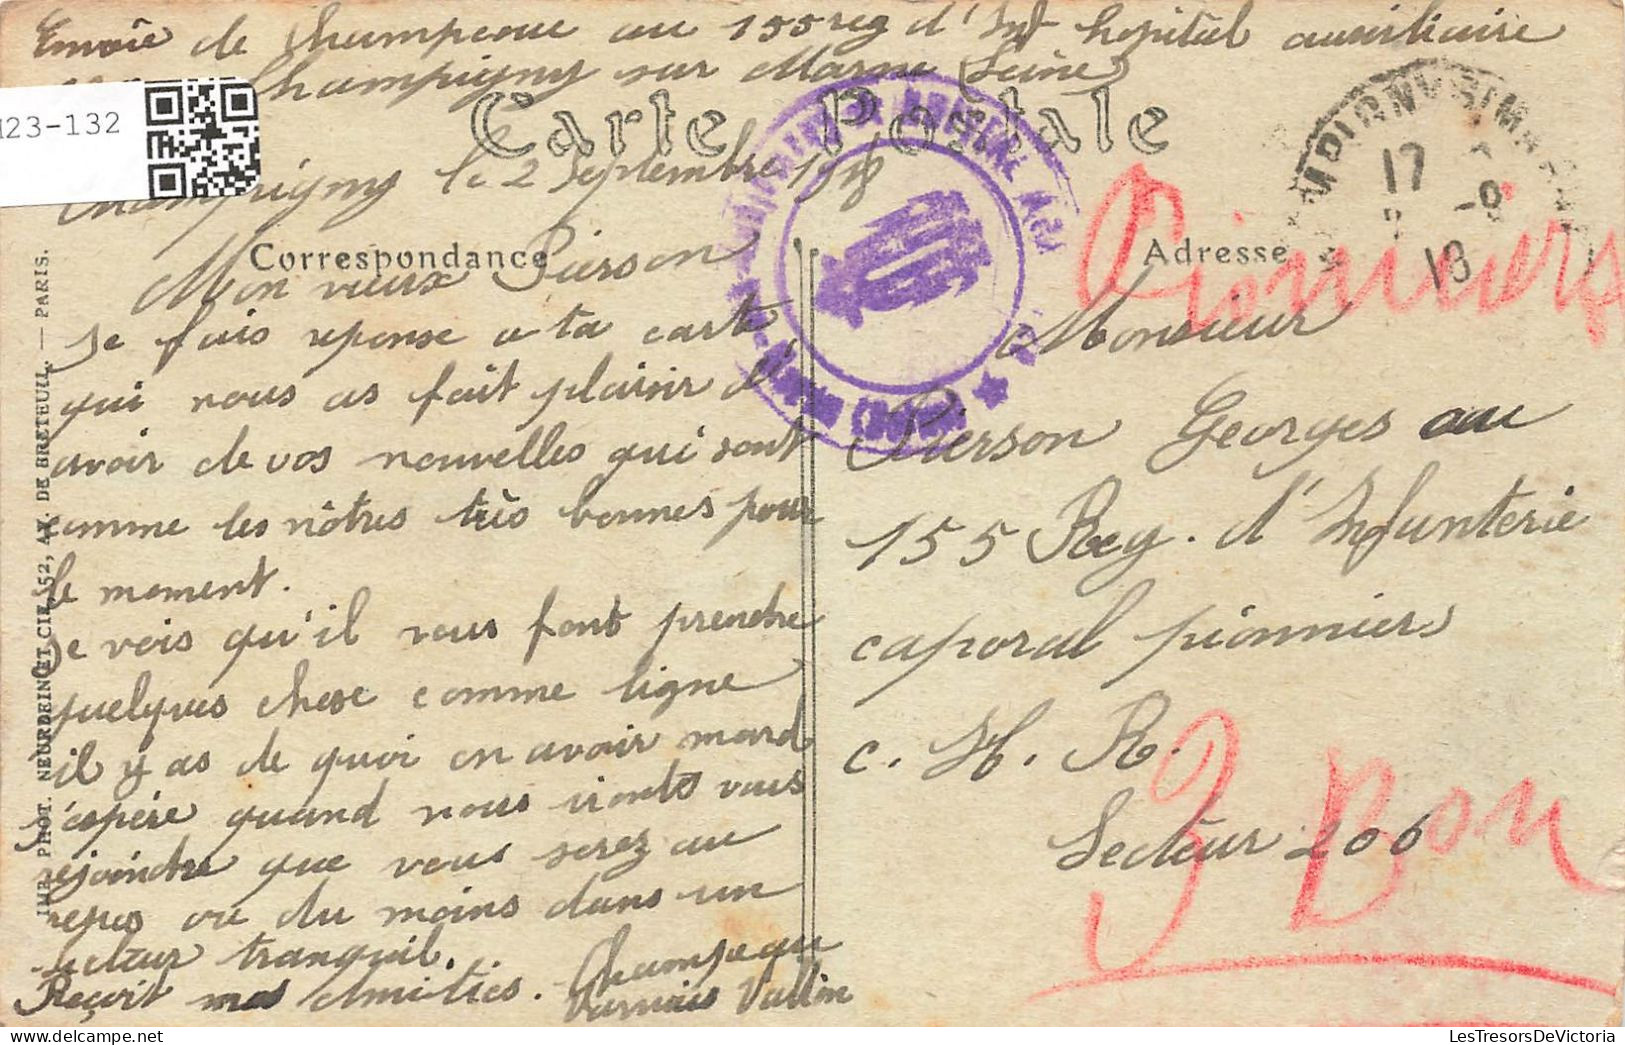 Envoie de Champeau au 155 reg d'Inf hopital auxiliaire
Champigny sur Marne (Seine)
M23-132
Carte Postale
Champigny le 2 Septembre 1918
Correspondance
Mon vieux Pierson
Je fais reponse a ta carte
qui nous as fait plaisir d'
avoir de vos nouvelles qui sont
comme les nôtres très bonnes pour
le moment.
Je vois qu'il vous font prendre
quelques chose comme ligne
il y as de quoi en avoir mard
j'espère quand nous irons vous
rejoindre que vous serez au
repos ou du moins dans un
secteur tranquil.
Reçoit mes Amitiés. Champeau
Vallin
IMP. PHOT. NEURDEIN ET CIE, 52, AV. DE BRETEUIL. — PARIS.
17 -9
18
Adresse
Pionniers
Monsieur
Pierson Georges au
155 Reg. d'Infanterie
caporal pionniers
C. H. R.
Secteur 206
3 Bon
LesTresorsDeVictoria.com